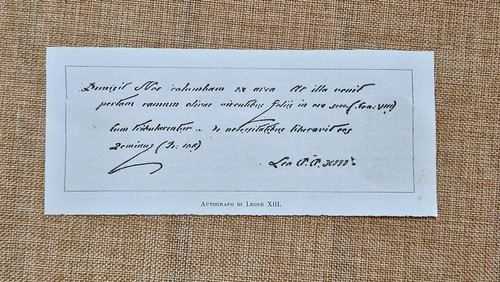 Dimisit Noe columbam ex arca At illa venit
portans ramum olivae virentibus foliis in ore suo (Gen: VIII)
Cum tribularentur .. de necessitatibus liberavit eos
Dominus (Ps: 106)
Leo P.P. XIII
AUTOGRAFO DI LEONE XIII.